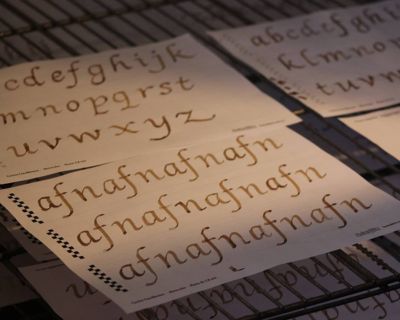 cdefghijk
mnopqrst
uvwxyz
abcdefgh
klmnop
tuvw
afnafnafnafnafn
afnafnafnafnafn
afnafnafnafnafn